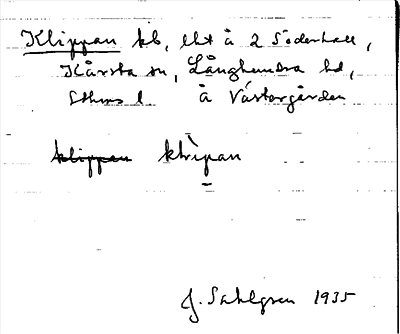 Klippan kb, lht å 2 Söderhall,
Kårsta sn, Långhundra hd,
Sthms l å Västergården
klippan klìpan
J. Sahlgren 1935